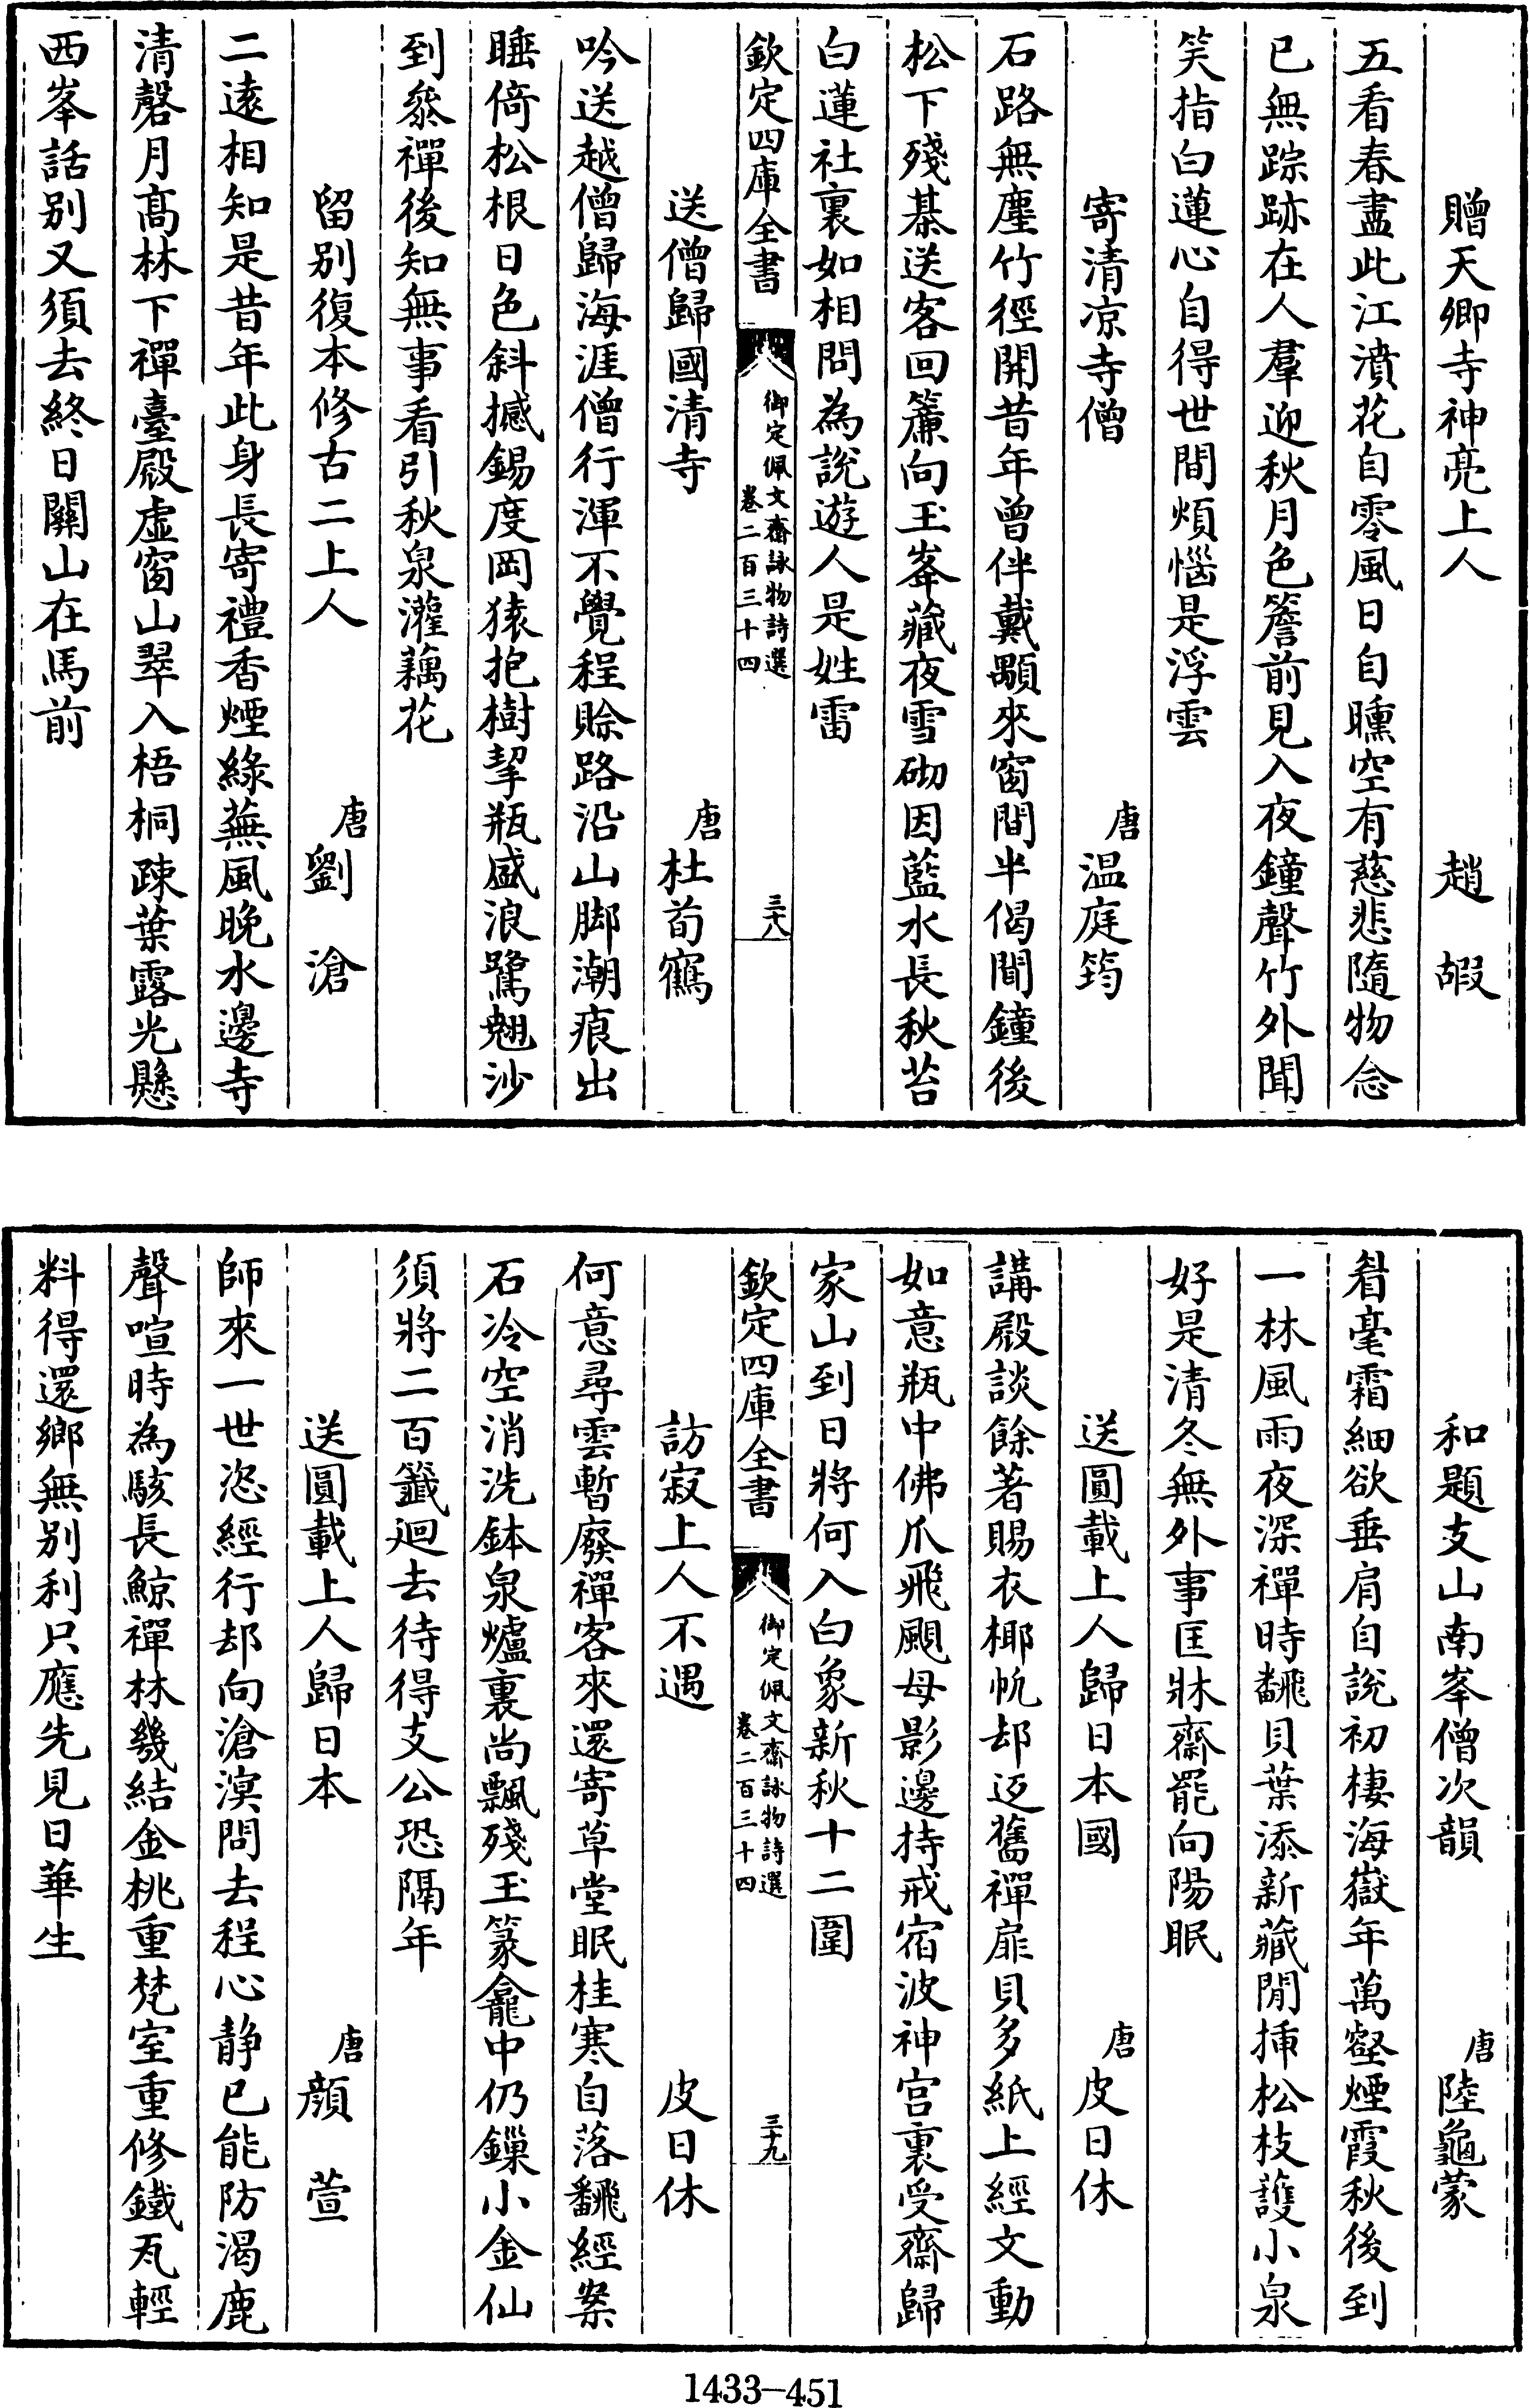 贈天卿寺神亮上人　趙　嘏
五看春盡此江濆花自零風日自曛空有慈悲隨物念
已無踪跡在人羣迎秋月色簷前見入夜鐘聲竹外聞
笑指白蓮心自得世間煩惱是浮雲
寄清凉寺僧　唐温庭筠
石路無塵竹徑開昔年曾伴戴顒來窗間半偈聞鐘後
松下殘棊送客回簾向玉峯藏夜雪砌因藍水長秋苔
白蓮社裏如相問為說遊人是姓雷
欽定四庫全書　御定佩文齋詠物詩選　卷二百三十四　三十八
送僧歸國清寺　唐杜荀鶴
吟送越僧歸海涯僧行渾不覺程賒路沿山脚潮痕出
睡倚松根日色斜撼錫度岡猿抱樹挈瓶盛浪鷺翹沙
到叅禪後知無事看引秋泉灌藕花
留別復本修古二上人　唐劉　滄
二遠相知是昔年此身長寄禮香煙綠蕪風晚水邊寺
清磬月高林下禪臺殿虛窗山翠入梧桐疎葉露光懸
西峯話別又須去終日關山在馬前
和題支山南峯僧次韻　唐陸龜蒙
眉毫霜細欲垂肩自說初棲海嶽年萬壑煙霞秋後到
一林風雨夜深禪時飜貝葉添新藏閒插松枝護小泉
好是清冬無外事匡牀齋罷向陽眠
送圓載上人歸日本國　唐皮日休
講殿談餘著賜衣椰帆却返舊禪扉貝多紙上經文動
如意瓶中佛爪飛颶母影邊持戒宿波神宮裏受齋歸
家山到日將何入白象新秋十二圍
欽定四庫全書　御定佩文齋詠物詩選　卷二百三十四　三十九
訪寂上人不遇　皮日休
何意尋雲暫廢禪客來還寄草堂眠桂寒自落飜經案
石冷空消洗鉢泉爐裏尚飄殘玉篆龕中仍鏁小金仙
須將二百籤迴去待得支公恐隔年
送圓載上人歸日本　唐顏　萱
師來一世恣經行却向滄溟問去程心静已能防渴鹿
聲喧時為駭長鯨禪林幾結金桃重梵室重修鐵瓦輕
料得還鄉無別利只應先見日華生
1433-451